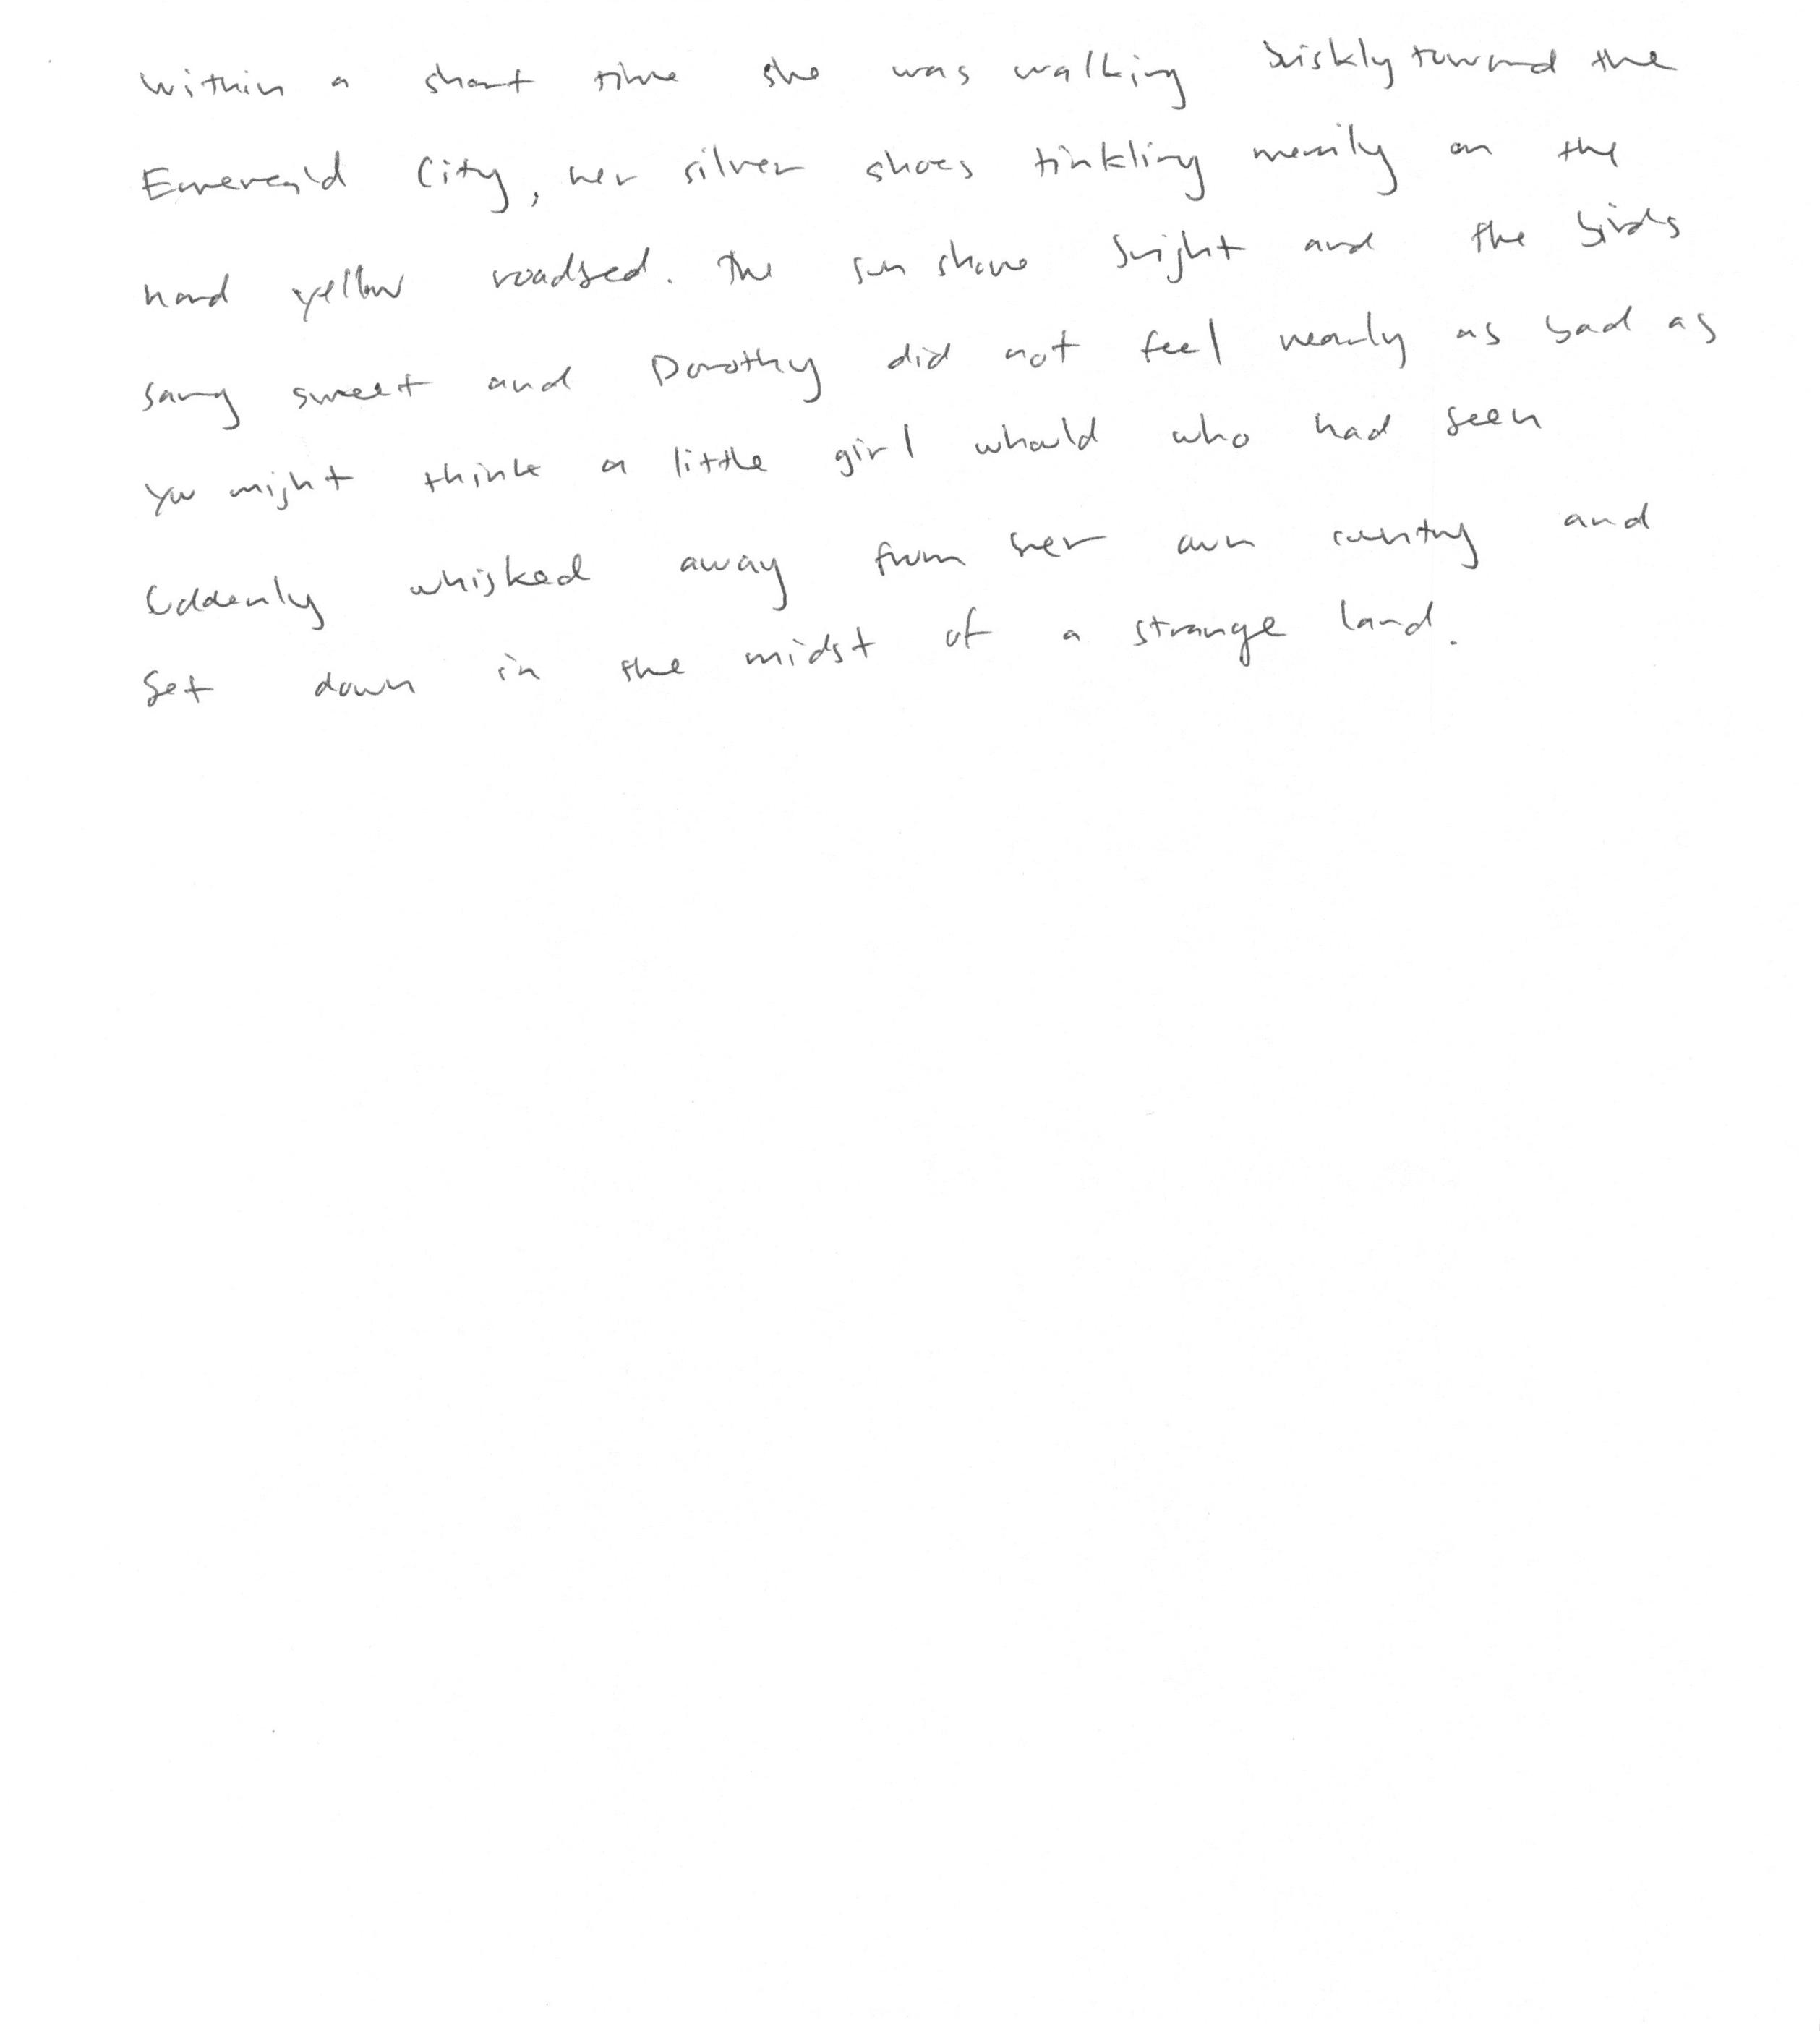 Within a short time she was walking briskly toward the
Emerald City, her silver shoes tinkling merrily on the
hard yellow roadbed. The sun shone bright and the birds
sang sweet and Dorothy did not feel nearly as bad as
you might think a little girl whould who had been
suddenly whisked away from her own country and
set down in the midst of a strange land.